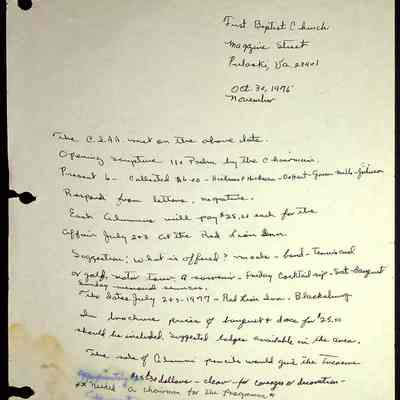 First Baptist Church
Magazine Street
Pulaski, Va 24301
Oct. 30, 1976
November
The C.I.A.A. met on the above date.
Opening scripture 110 Psalm by the Chairman.
Present 6 - Collected $6.00 - Holmes - Hickman - DeHart - Green - Mills - Johnson
Respond from letters, negative.
Each Alumnus will pay $25.00 each for the
affair July 2+3 at the Red Lion Inn.
Suggestion; What is offered? meals - band - Tennis and
or golf, motor tour, a souvenir - Friday Cocktail sip - Sat. Banquet
Sunday memorial services.
The dates July 2+3 - 1977 - Red Lion Inn - Blacksburg
In brochure prices of banquet + dance for $25.00
should be included. Suggested lodges available in the area.
The sale of Alumni pencils would give the treasurer
dollars - clear - for corsages or decoration -
Need a chairman for the programme